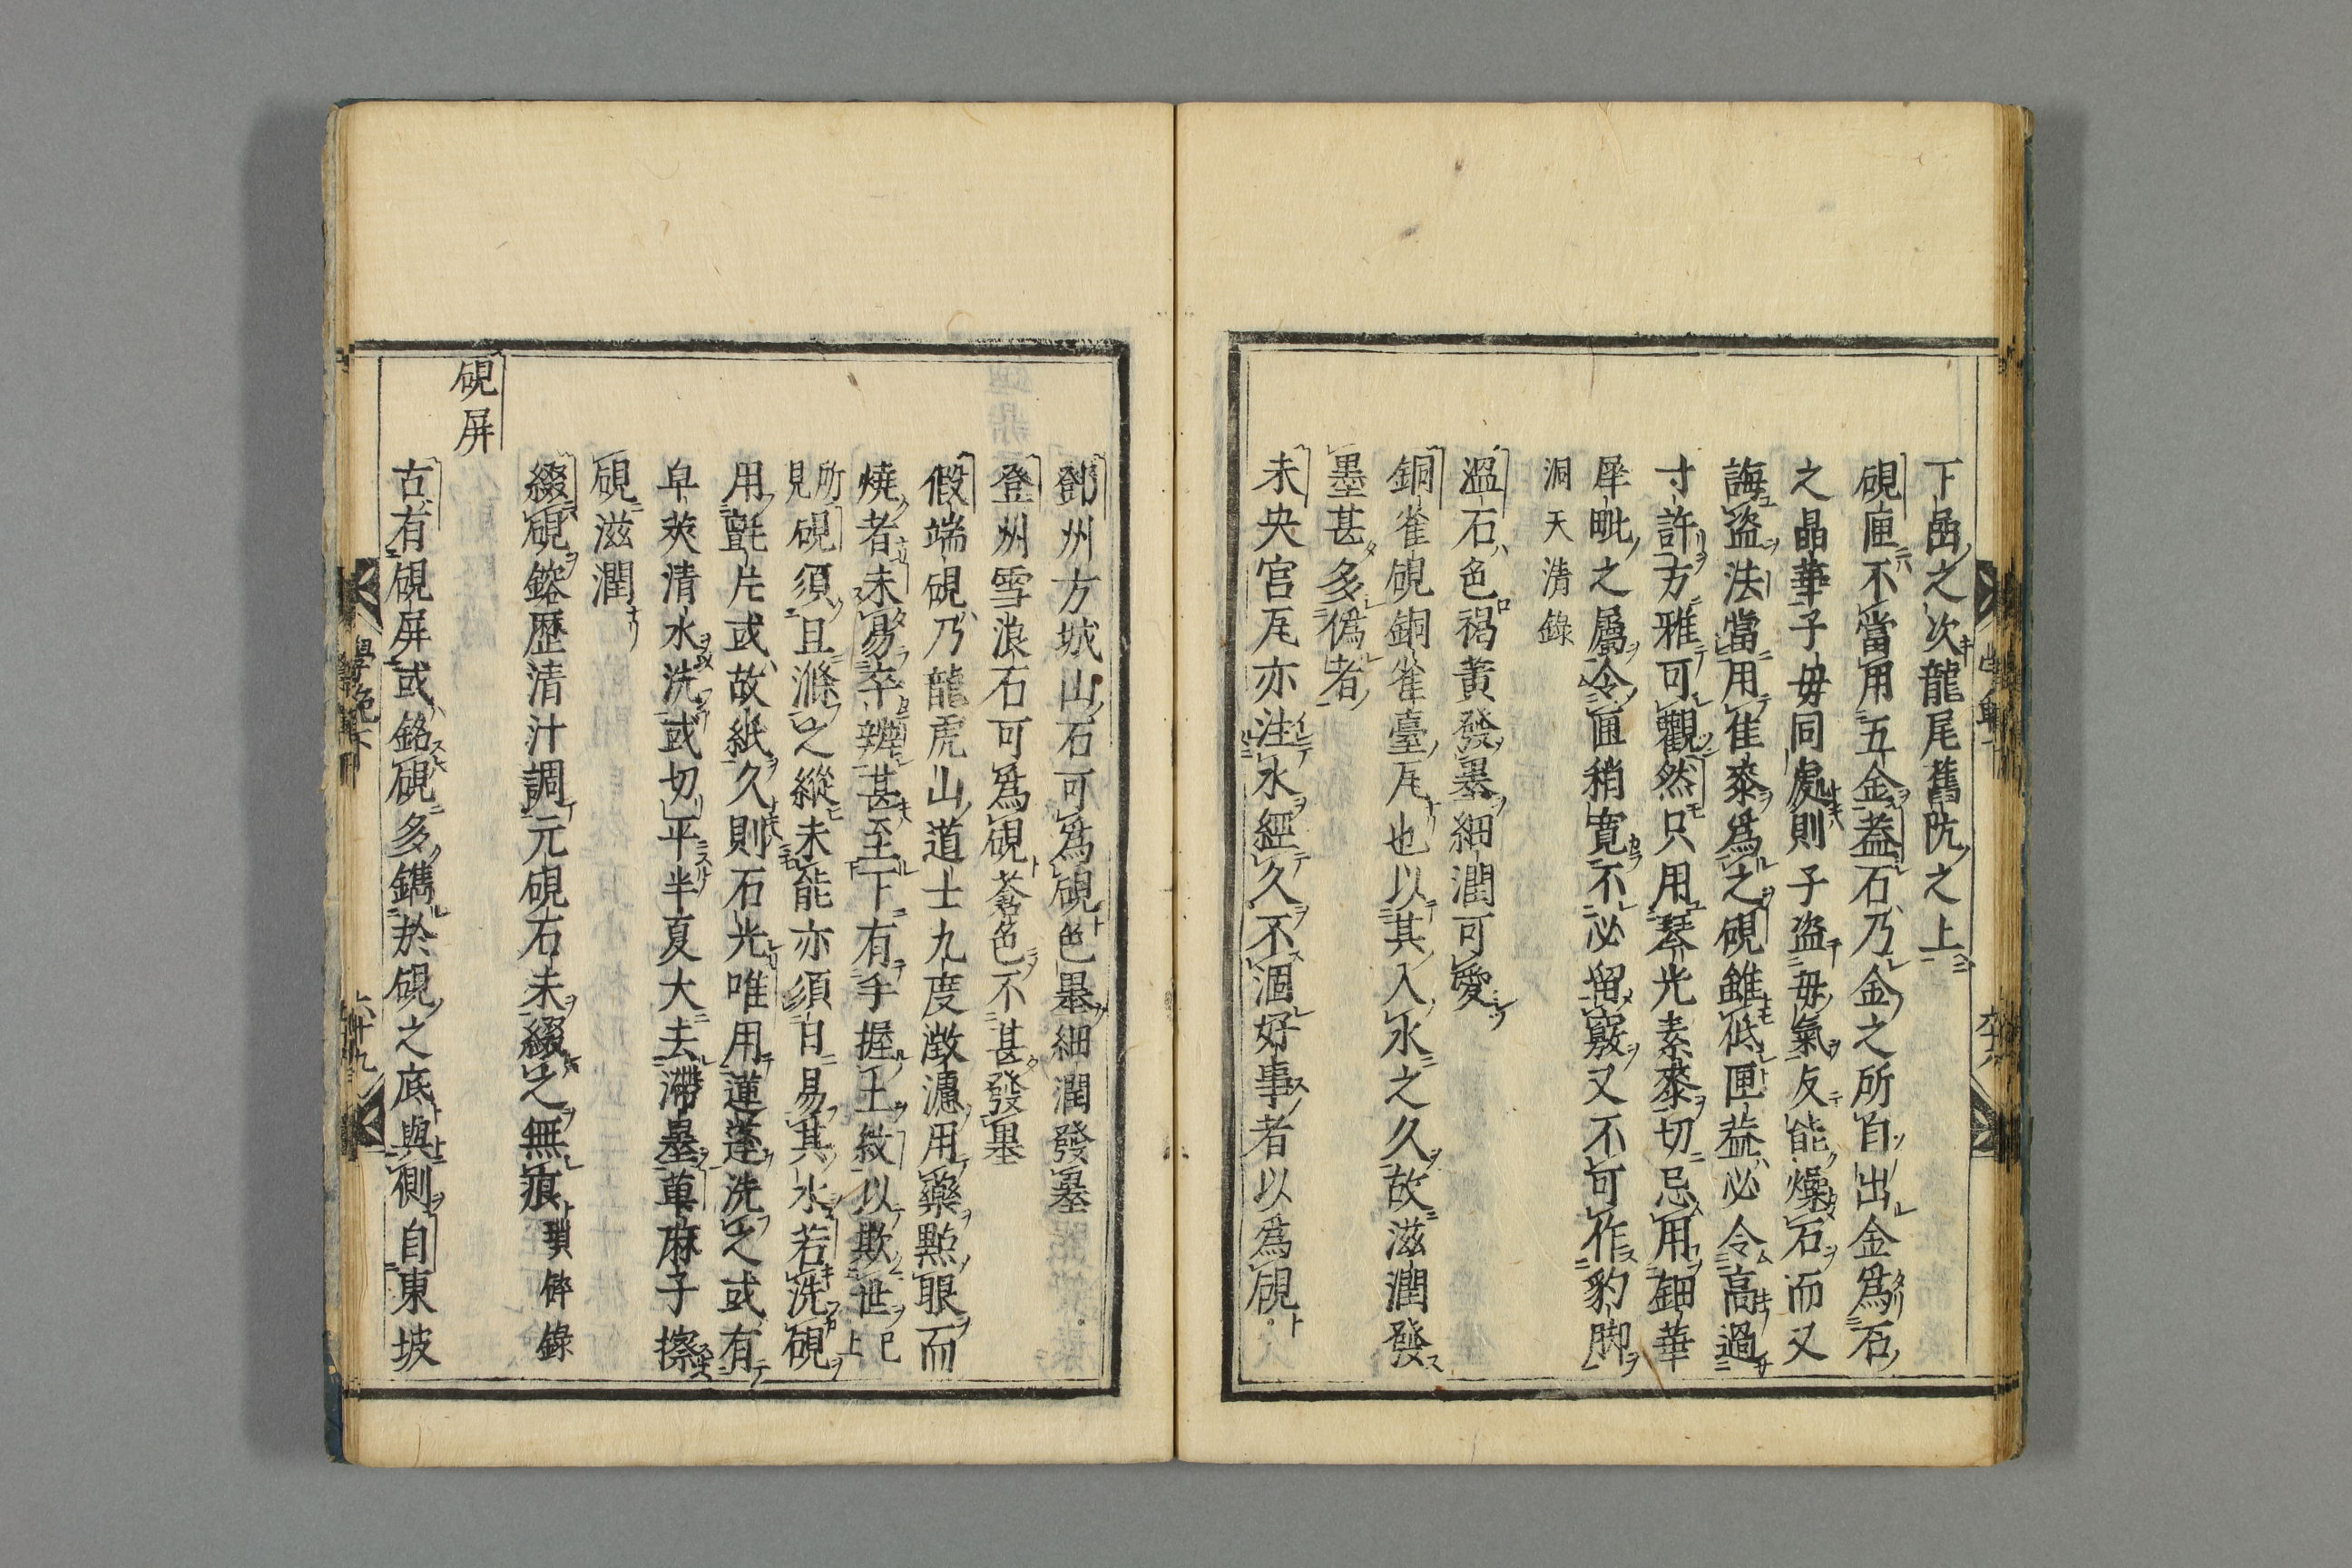 下嵒之次龍尾舊阬之上
硯匣不當用五金蓋石乃金之所自出金爲石
之晶華子毋同處則子盗毋氣反能燥石而又
誨盗法當用隹桼爲之硯雖低匣葢必令高過
寸許方雅可觀然只用琴光素桼切忌用鈿華
犀毗之屬令匣稍寛不必留竅又不可作豹脚
洞天清録
温石色褐黄發墨細潤可愛
銅雀硯銅雀臺瓦也以其入水之久故滋潤發
墨甚多偽者
未央宫瓦亦注水經久不涸好事者以爲硯
鄧州方城山石可爲硯色墨細潤發墨
登州雪浪石可爲硯蒼色不甚發墨
假端硯乃龍虎山道士九度澂濾用藥點眼而
燒者未易卒辨甚至下有手握王紋以欺世已上
所見硯須且滌之縱未能亦須日易其水若洗硯
用氈片或故紙久則石光唯用蓮蓬洗之或有
皁莢清水洗或切平半夏大去滯墨萆麻子擦
硯滋潤
綴硯鎔歷清汁調元硯石末綴之無痕瑣碎錄
硯屏
古有硯屏或銘硯多鐫於硯之底與側自東坡
六十九